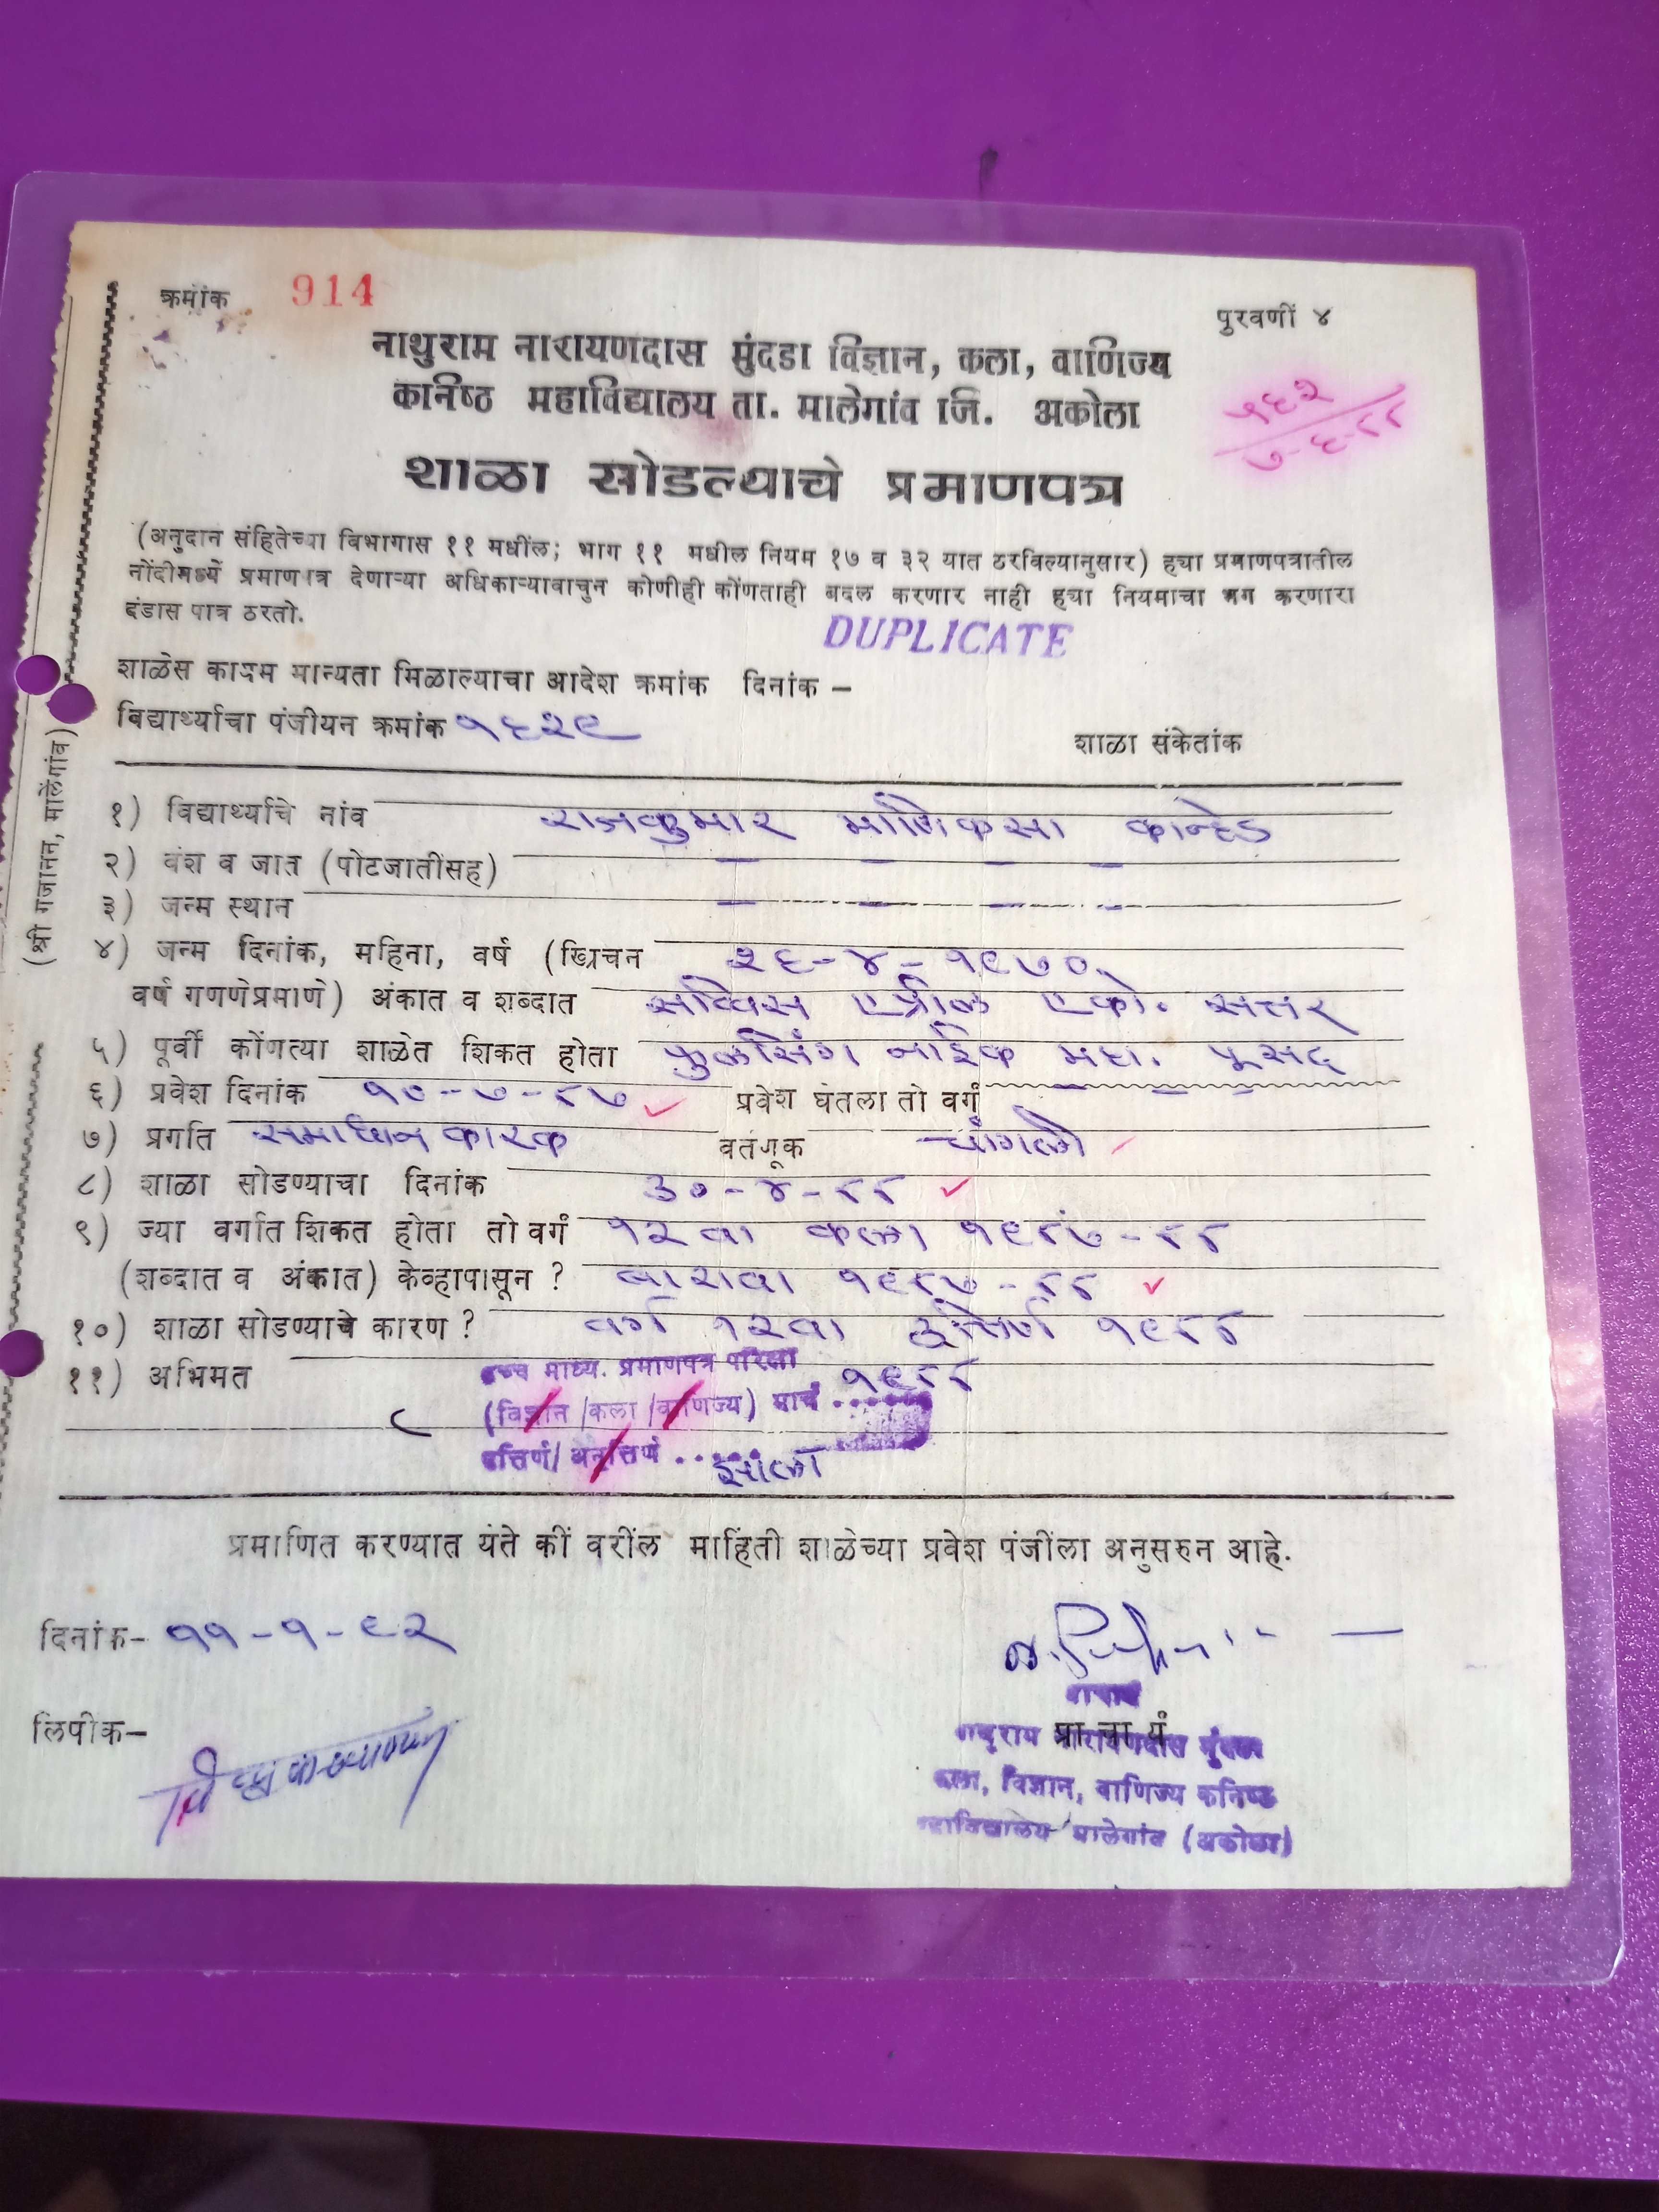 क्रमांक 914
पुरवणीं ४
नाथुराम नारायणदास मुंदडा विज्ञान, कला, वाणिज्य
कनिष्ठ महाविद्यालय ता. मालेगांव जि. अकोला
१६२
७-६-८८
शाळा सोडल्याचे प्रमाणपत्र
(अनुदान संहितेच्या विभागास ११ मधींल; भाग ११ मधील नियम १७ व ३२ यात ठरविल्यानुसार) हचा प्रमाणपत्रातील
नोंदीमध्यें प्रमाणपत्र देणाऱ्या अधिकाऱ्यावाचुन कोणीही कोंणताही बदल करणार नाही हचा नियमाचा भग करणारा
दंडास पात्र ठरतो.
DUPLICATE
शाळेस कायम मान्यता मिळाल्याचा आदेश क्रमांक दिनांक –
विद्यार्थ्याचा पंजीयन क्रमांक १६२९
शाळा संकेतांक
(श्री गजानन, मालेंगांव)
१) विद्यार्थ्याचे नांव राजकुमार माणिकसा कान्हेड
२) वंश व जात (पोटजातींसह) – – – –
३) जन्म स्थान – – – –
४) जन्म दिनांक, महिना, वर्ष (ख्रिचन २६-४-१९७०
वर्ष गणणेप्रमाणे) अंकात व शब्दात सव्विस एप्रील एको. सत्तर
५) पूर्वी कोंणत्या शाळेत शिकत होता फुलसिंग नाईक महा. पूसद
६) प्रवेश दिनांक १०-७-८७ प्रवेश घेतला तो वर्ग – – –
७) प्रगति समाधान कारक वर्तणूक चांगली
८) शाळा सोडण्याचा दिनांक ३०-४-८८
९) ज्या वर्गात शिकत होता तो वर्ग १२ वा कला १९८७-८८
(शब्दात व अंकात) केव्हापासून ? बारावा १९८७-८८
१०) शाळा सोडण्याचे कारण ? वर्ग १२वा उत्तिर्ण १९८८
११) अभिमत उच्च माध्य. प्रमाणपत्र परिक्षा
(विज्ञान/कला/वाणिज्य) मार्च १९८८
उत्तिर्ण/अनुत्तिर्ण झाला
प्रमाणित करण्यात येते कीं वरींल माहिंती शाळेच्या प्रवेश पंजींला अनुसरुन आहे.
दिनांक– ११-१-९२
लिपीक–
प्राचार्य
नाथुराम नारायणदास मुंदडा
कला, विज्ञान, वाणिज्य कनिष्ठ
महाविद्यालय मालेगांव (अकोला)